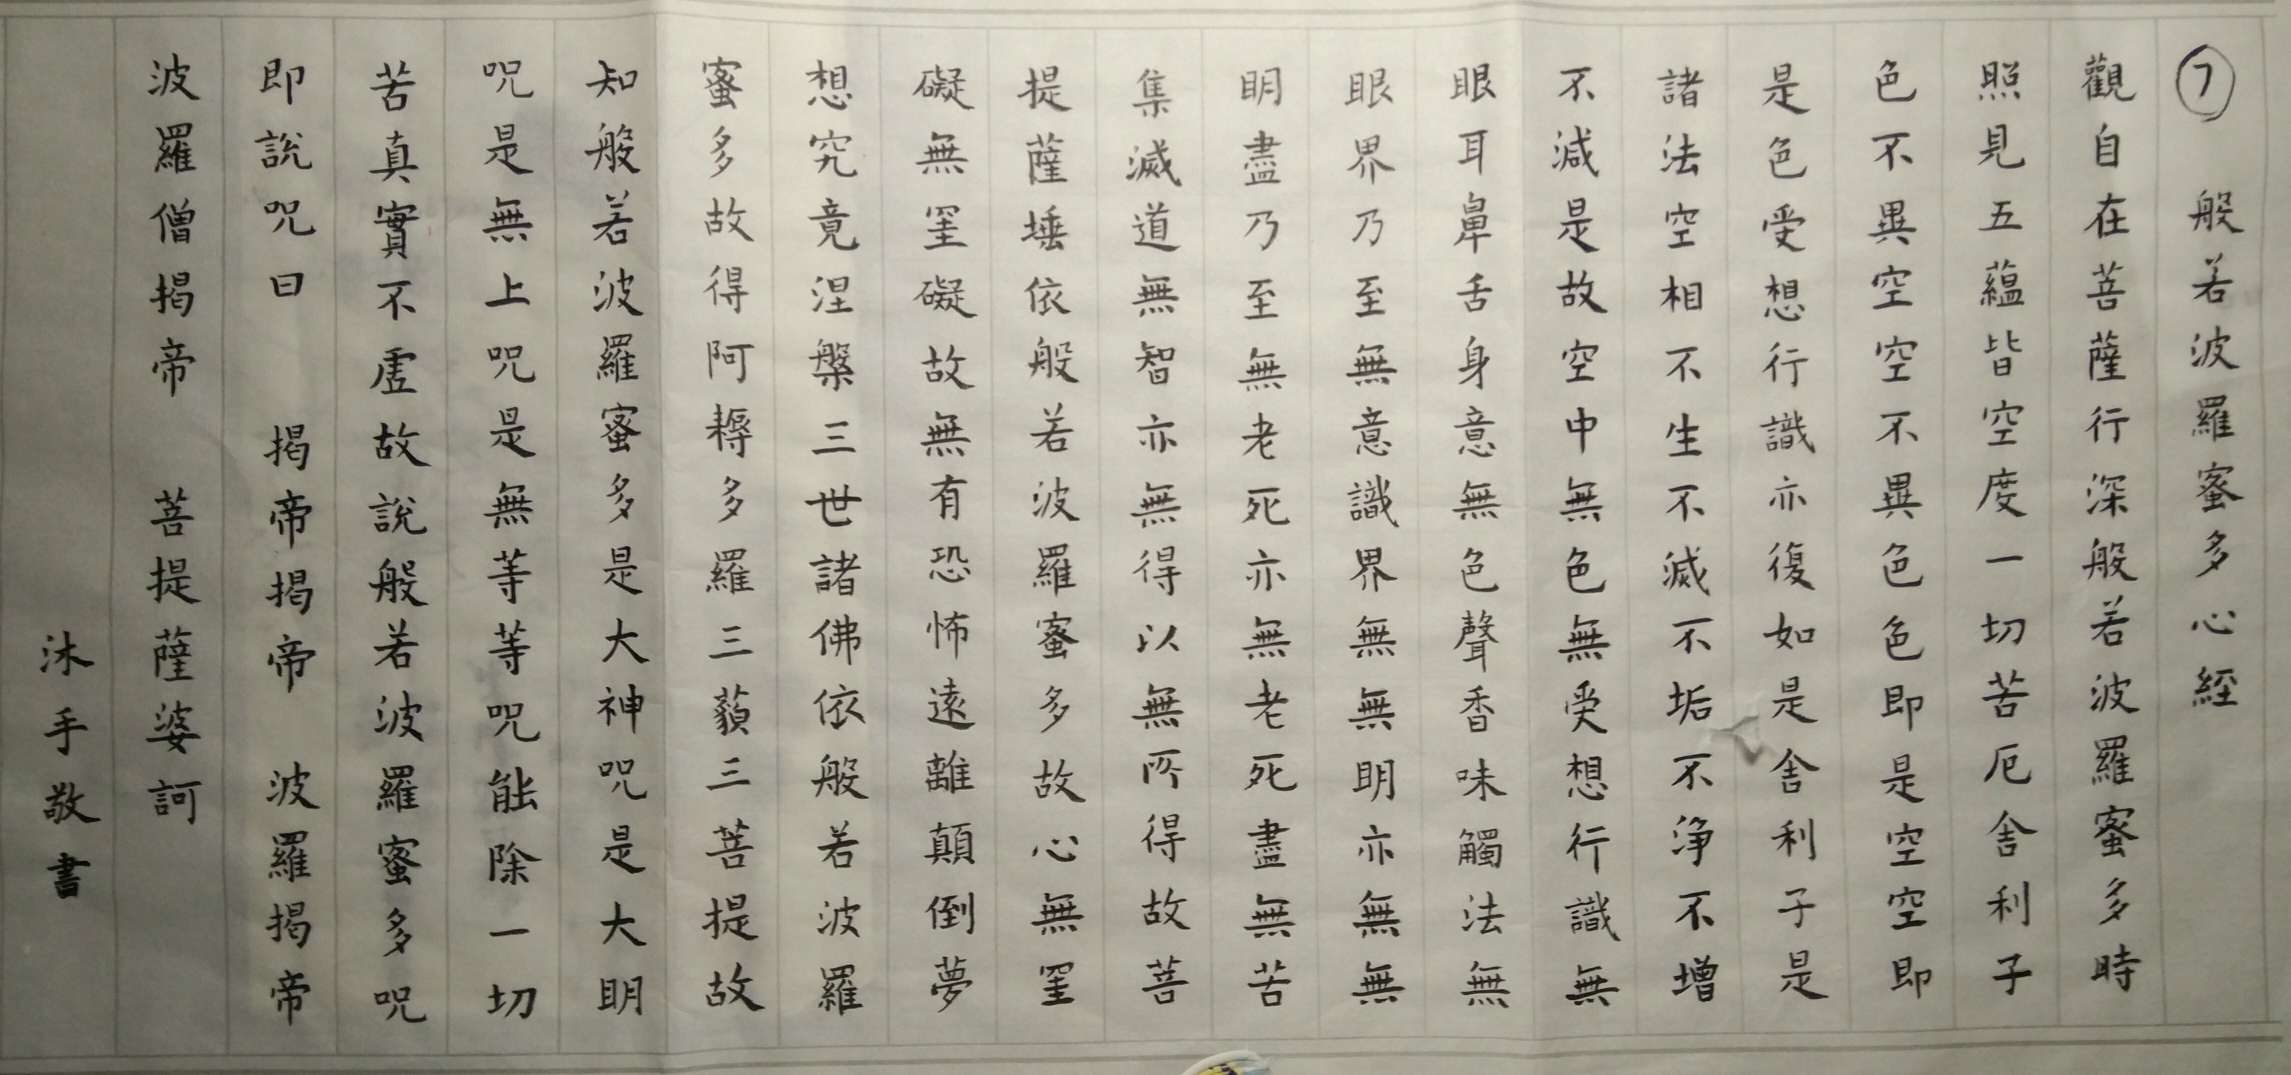 ⑦ 般若波羅蜜多心經
觀自在菩薩行深般若波羅蜜多時
照見五蘊皆空度一切苦厄舍利子
色不異空空不異色色即是空空即
是色受想行識亦復如是舍利子是
諸法空相不生不滅不垢不淨不增
不減是故空中無色無受想行識無
眼耳鼻舌身意無色聲香味觸法無
眼界乃至無意識界無無明亦無無
明盡乃至無老死亦無老死盡無苦
集滅道無智亦無得以無所得故菩
提薩埵依般若波羅蜜多故心無罣
礙無罣礙故無有恐怖遠離顛倒夢
想究竟涅槃三世諸佛依般若波羅
蜜多故得阿耨多羅三藐三菩提故
知般若波羅蜜多是大神咒是大明
咒是無上咒是無等等咒能除一切
苦真實不虛故說般若波羅蜜多咒
即說咒曰 揭帝揭帝 波羅揭帝
波羅僧揭帝 菩提薩婆訶
沐手敬書